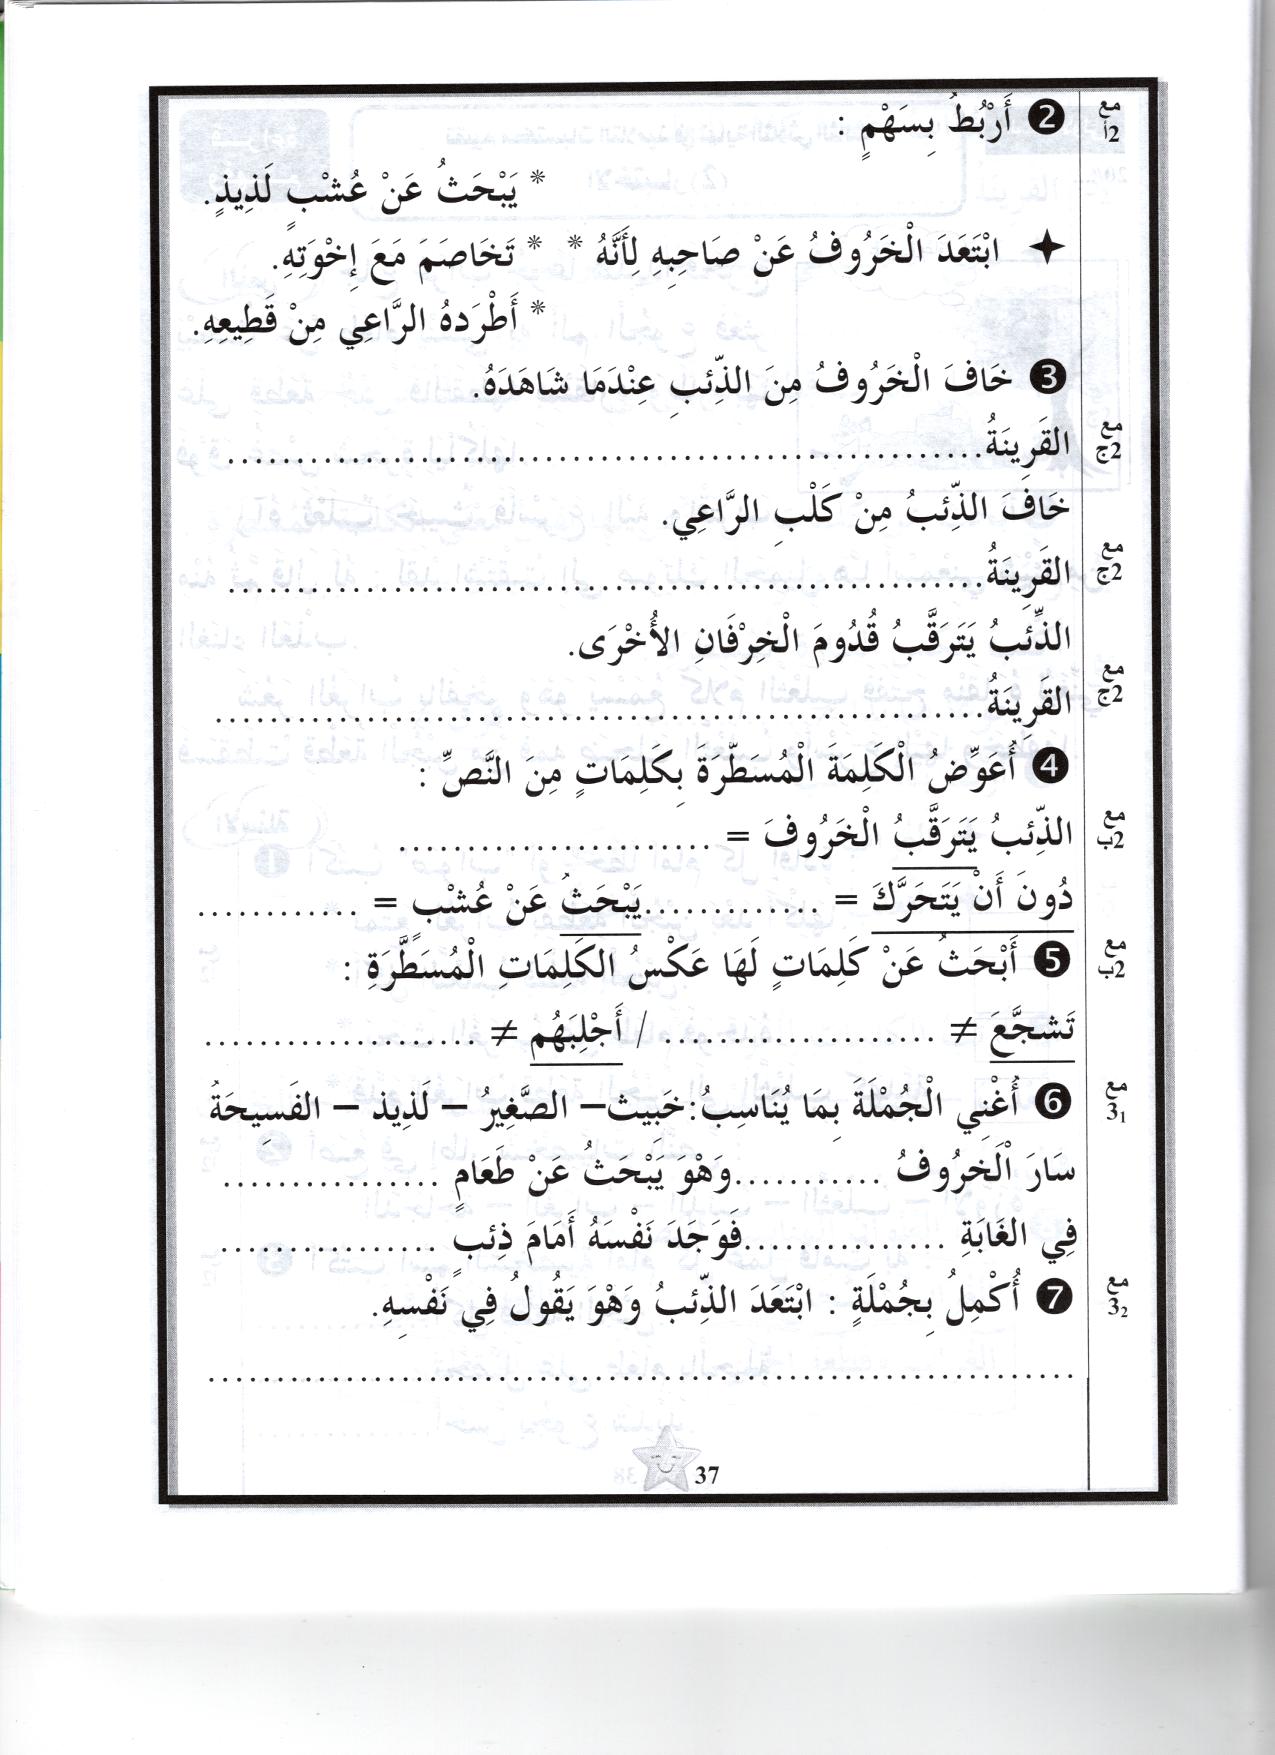 مع 2أ
❷ أَرْبُطُ بِسَهْمٍ :
* يَبْحَثُ عَنْ عُشْبٍ لَذِيذٍ.
✦ ابْتَعَدَ الْخَرُوفُ عَنْ صَاحِبِهِ لِأَنَّهُ * * تَخَاصَمَ مَعَ إِخْوَتِهِ.
* أَطْرَدهُ الرَّاعِي مِنْ قَطِيعِهِ.
❸ خَافَ الْخَرُوفُ مِنَ الذِّئبِ عِنْدَمَا شَاهَدَهُ.
مع 2ج
القَرِينَةُ..........................................................
خَافَ الذِّئبُ مِنْ كَلْبِ الرَّاعِي.
مع 2ج
القَرِينَةُ..........................................................
الذِّئبُ يَتَرَقَّبُ قُدُومَ الْخِرْفَانِ الأُخْرَى.
مع 2ج
القَرِينَةُ..........................................................
❹ أُعَوِّضُ الْكَلِمَةَ الْمُسَطَّرَةَ بِكَلِمَاتٍ مِنَ النَّصِّ :
مع 2ب
الذِّئبُ يَتَرَقَّبُ الْخَرُوفَ = ........................
دُونَ أَنْ يَتَحَرَّكَ = ..............يَبْحَثُ عَنْ عُشْبٍ = ............
مع 2ب
❺ أَبْحَثُ عَنْ كَلِمَاتٍ لَهَا عَكْسُ الكَلِمَاتِ الْمُسَطَّرَةِ :
تَشجَّعَ ≠ ..................... / أَجْلِبَهُم ≠ .....................
مع 3₁
❻ أُغْنِي الْجُمْلَةَ بِمَا يُنَاسِبُ:خَبِيث– الصَّغِيرُ – لَذِيذ – الفَسِيحَةُ
سَارَ اْلخَرُوفُ ...........وَهْوَ يَبْحَثُ عَنْ طَعَامٍ ................
فِي الغَابَةِ ...............فَوَجَدَ نَفْسَهُ أَمَامَ ذِئبٍ ................
مع 3₂
❼ أُكْمِلُ بِجُمْلَةٍ : ابْتَعَدَ الذِّئبُ وَهْوَ يَقُولُ فِي نَفْسِهِ.
..................................................................
37